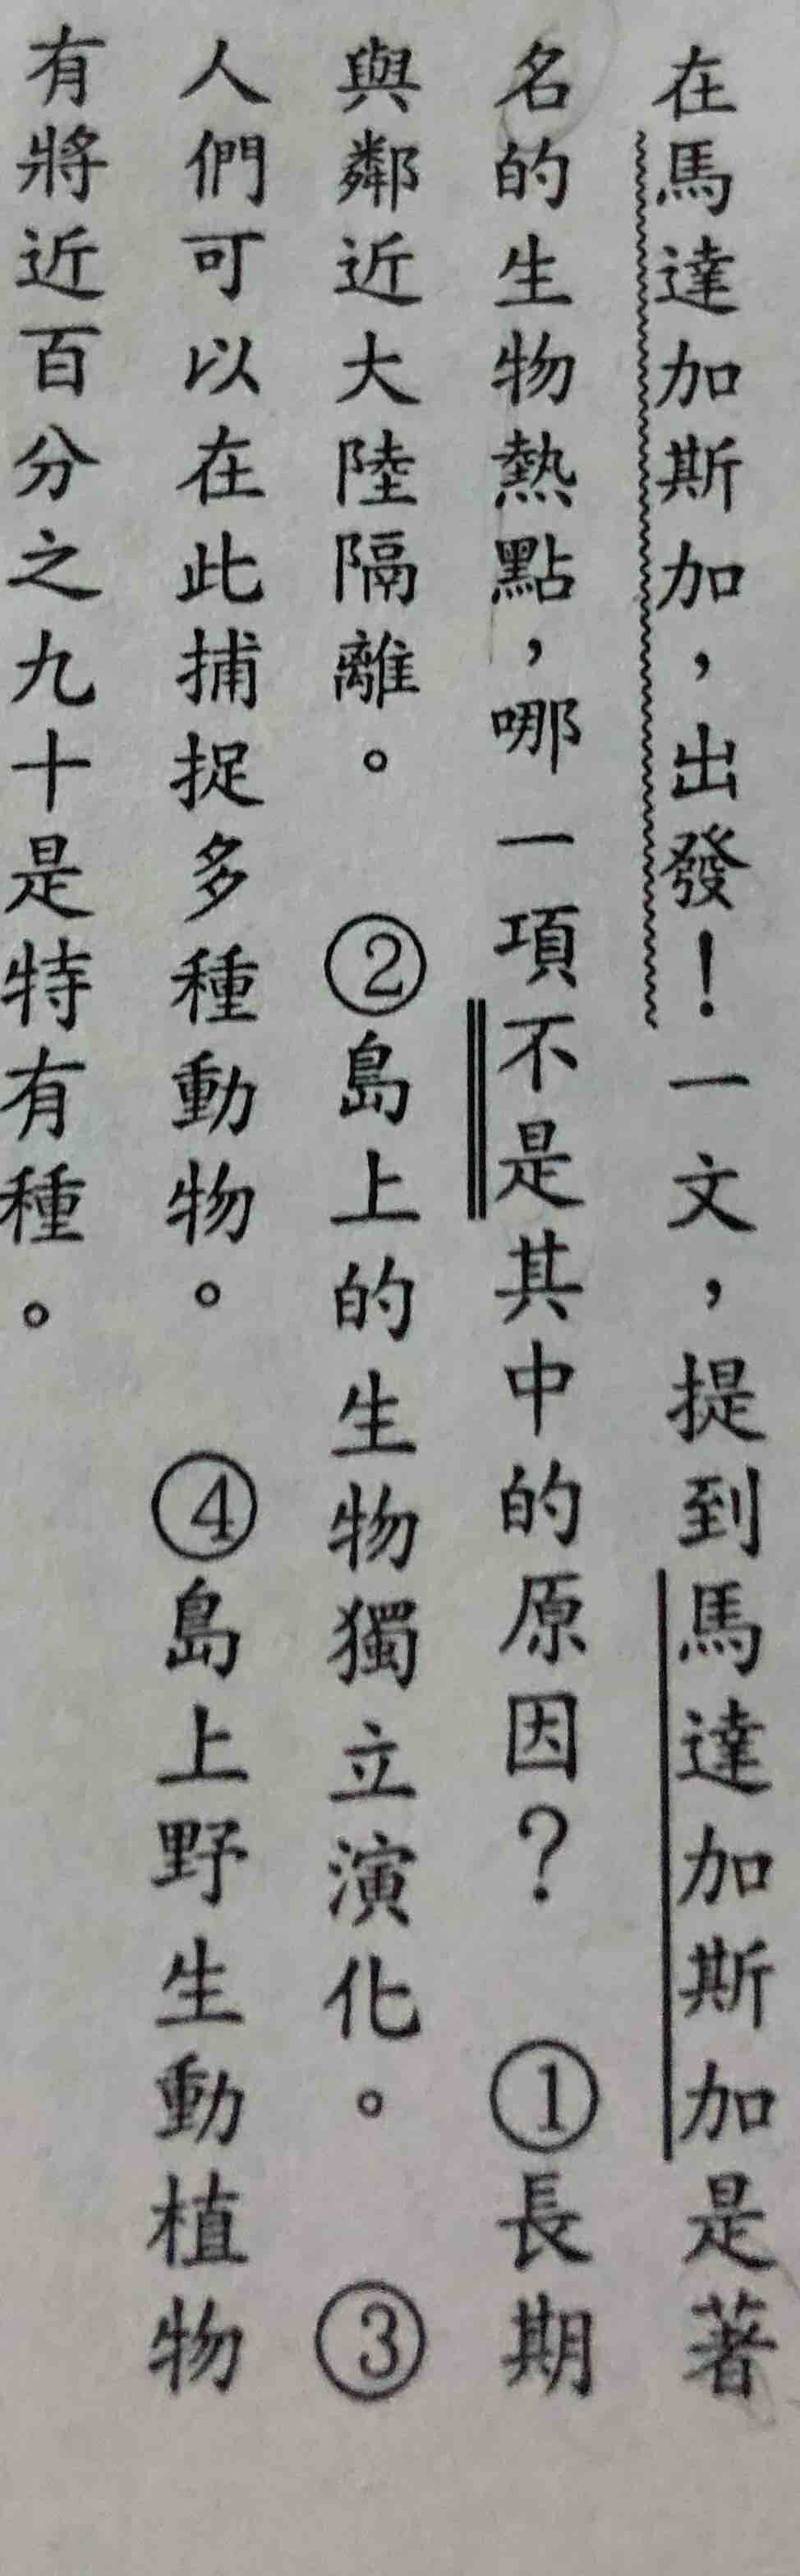 在馬達加斯加，出發！一文，提到馬達加斯加是著
名的生物熱點，哪一項不是其中的原因？　①長期
與鄰近大陸隔離。　②島上的生物獨立演化。　③
人們可以在此捕捉多種動物。　④島上野生動植物
有將近百分之九十是特有種。